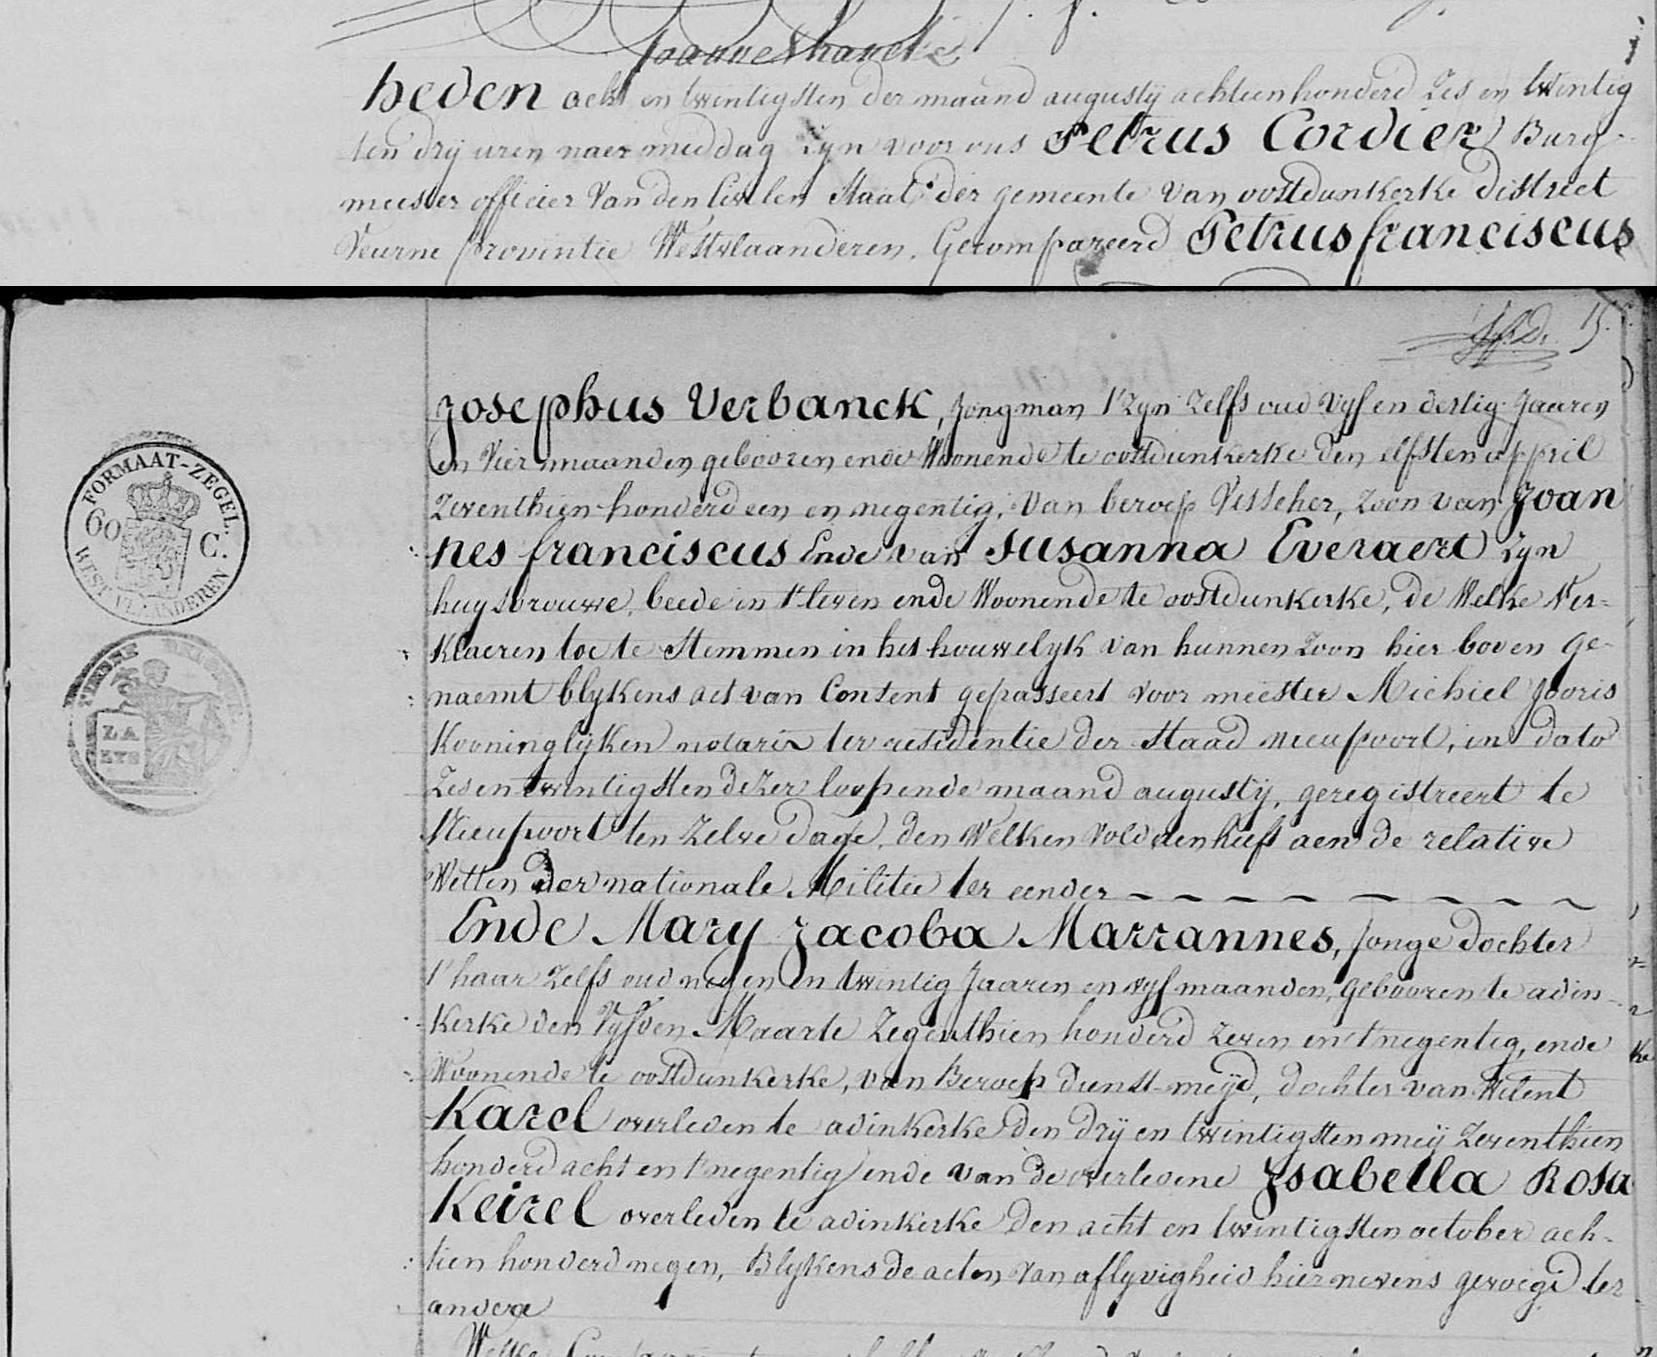 heden acht en twintigsten der maand augustÿ achtienhonderd Zes en twintig
ten drÿ uren naer middag zyn voor ons Petrus Cordier Burg-
meester officier van den Civilen Staat der gemeente van oostdunkerke district
Veurne provintie Westvlaanderen. Gecompareerd Petrus franciscus
15.
Josephus Verbanck, jongman t'zyn zelfs oud vyf en dertig Jaaren
en vier maanden gebooren ende Woonende te oostdunkerke den elfsten appril
Zeventhien-honderd een en negentig, van beroep Visscher, zoon van Joan
nes franciscus Ende van Susanna Everaert zyn
huysvrouwe, beede in t'leven ende Woonende te oostdunkerke, de Welke Ver=
klaeren toe te Stemmen in het houwelyk van hunnen zoon hier boven ge-
naemt blykens act van Consent gepasseert voor meester Michiel Jooris
Kooninglÿken notaris ter residentie der Staad nieupoort, in dato
Zesentwintigsten dezer loopende maand augustÿ, geregistreert te
Nieupoort ten zelve dage, den Welken voldaen heeft aen de relative
Wetten der nationale Militie ter eender
Ende Mary Jacoba Marrannes, jonge dochter
t'haar zelfs oud negen en twintig Jaaren en vyf maanden, gebooren te adin-
kerke den vyfden Maarte Zegenthien honderd zeven en t'negentig, ende
Woonende te oostdunkerke, van Beroep dienst-meÿd, dochter van Wilent
Karel overleden te adinkerke den drÿ en twintigsten meÿ zeventhien
honderd acht en t'negentig ende van de overledene Isabella Rosa
Keirel overleden te adinkerke den acht en twintigsten october ach-
tien honderd negen, Blykens de acten van aflyvigheid hiernevens gevoegd ter
andere
FORMAAT-ZEGEL.
60 C.
WEST VLAANDEREN